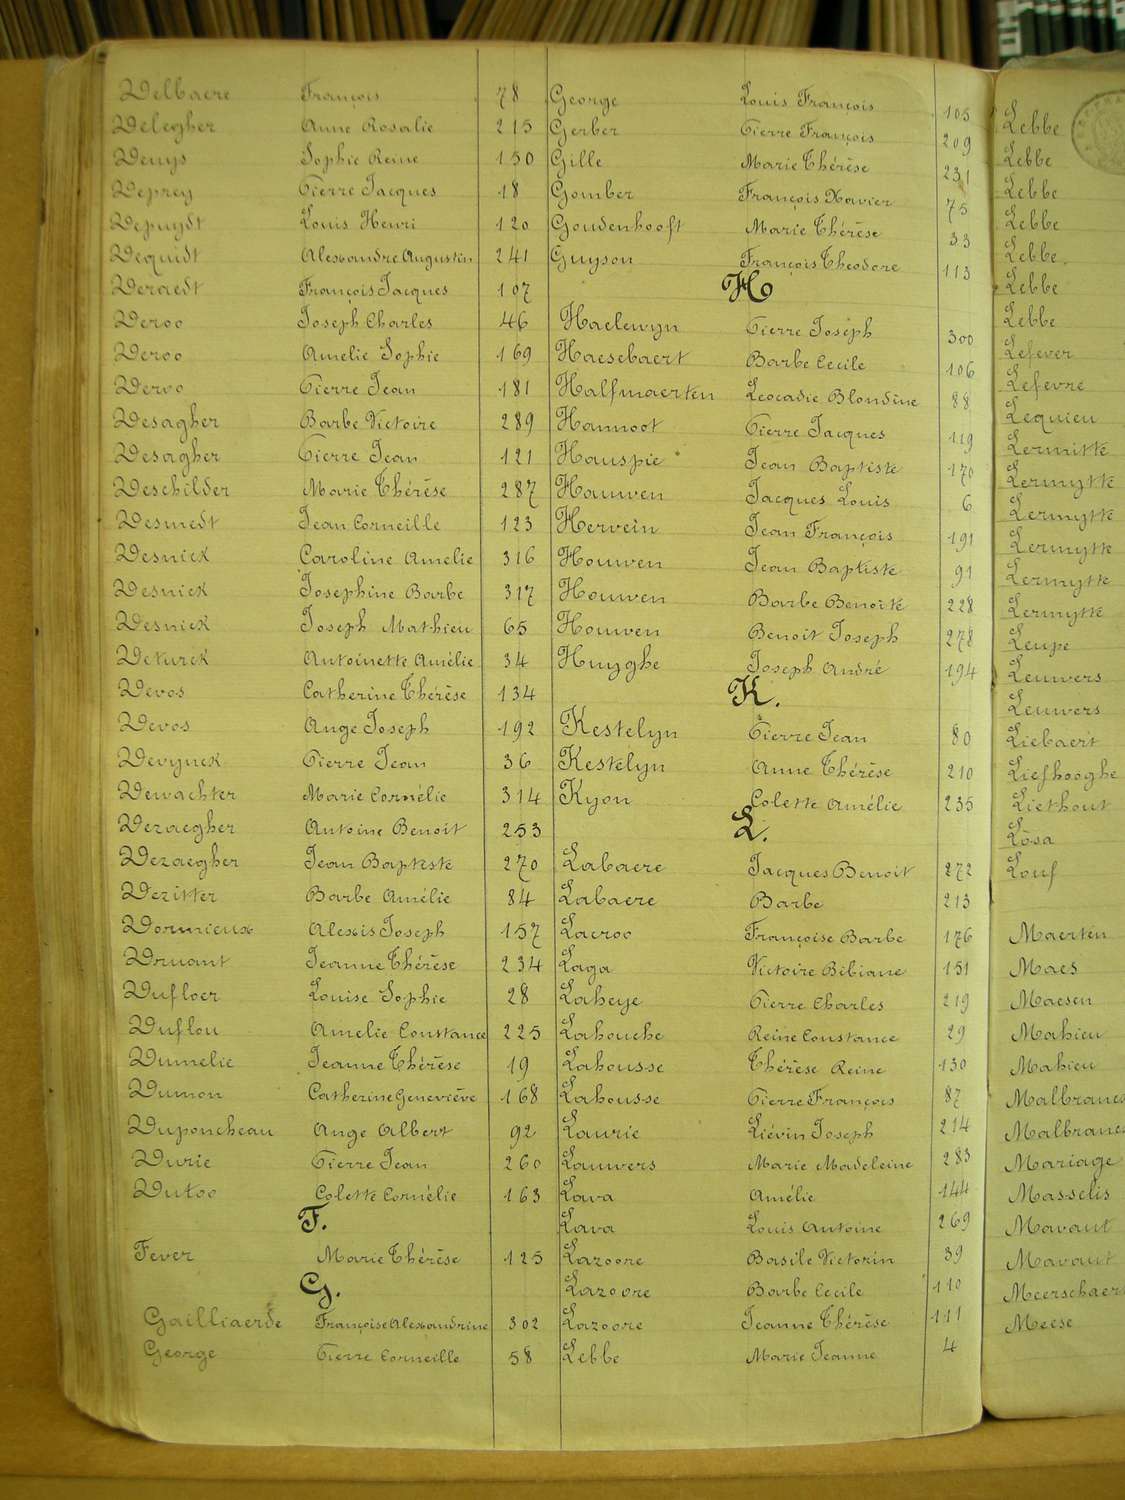 Delbaere François 78
Delegher Anne Rosalie 215
Denys Sophie Reine 150
Deprey Pierre Jacques 18
Depuydt Louis Henri 120
Dequidt Alexandre Augustin 241
Deraedt François Jacques 107
Deroo Joseph Charles 46
Deroo Amelie Sophie 169
Deroo Pierre Jean 181
Desagher Barbe Victoire 289
Desagher Pierre Jean 121
Deschilder Marie Thérèse 287
Desmedt Jean Corneille 123
Desnick Caroline Amelie 316
Desnick Josephine Barbe 317
Desnick Joseph Mathieu 65
Deturck Antoinette Amélie 34
Devos Catherine Thérèse 134
Devos Ange Joseph 192
Devynck Pierre Jean 36
Dewachter Marie Cornélie 314
Dezaegher Antoine Benoit 253
Dezaegher Jean Baptiste 270
Dezitter Barbe Amélie 84
Dormieux Alexis Joseph 157
Druant Jeanne Thérèse 234
Dufloer Louise Sophie 28
Duflou Amelie Constance 225
Dumelie Jeanne Thérèse 19
Dumon Catherine Geneviève 168
Duponcheau Ange Albert 92
Durie Pierre Jean 260
Dutoo Colette Cornélie 163
F.
Fever Marie Thérèse 125
G.
Gailliaerde Françoise Alexandrine 302
George Pierre Corneille 58
George Louis François 105
Gerber Pierre François 209
Gille Marie Thérèse 231
Gomber François Xavier 75
Goudenhooft Marie Thérèse 33
Guyson François Theodore 113
H
Haelewyn Pierre Joseph 300
Haesebaert Barbe Cecile 106
Halfmaerten Leocadie Blondine 88
Hannoot Pierre Jacques 119
Hauspie Jean Baptiste 170
Hauwen Jacques Louis 6
Hervein Jean François 191
Houwen Jean Baptiste 91
Houwen Barbe Benoite 228
Houwen Benoit Joseph 278
Huyghe Joseph André 194
K.
Kestelyn Pierre Jean 80
Kestelyn Anne Thérèse 210
Kyon Colette Amélie 235
L.
Labaere Jacques Benoit 272
Labaere Barbe 213
Lacroo Françoise Barbe 176
Laga Victoire Bibiane 151
Laheye Pierre Charles 219
Lahouche Reine Constance 29
Lahousse Thérèse Reine 130
Lahousse Pierre François 87
Laurie Liévin Joseph 214
Lauwers Marie Madeleine 283
Lava Amélie 144
Lava Louis Antoine 269
Lazoore Basile Victorin 39
Lazoore Barbe Cecile 110
Lazoore Jeanne Thérèse 111
Lebbe Marie Jeanne 4
Lebbe
Lebbe
Lebbe
Lebbe
Lebbe
Lebbe
Lebbe
Lefever
Lefevre
Lequieu
Lermitte
Lermytte
Lermytte
Lermytte
Lermytte
Lermytte
Leupe
Leuwers
Leuwers
Liebaert
Liefhooghe
Liethout
Losa
Louf
Maerten
Maes
Maesen
Mahieu
Mahieu
Mariage
Masselis
Mavaut
Mavaut
Meese